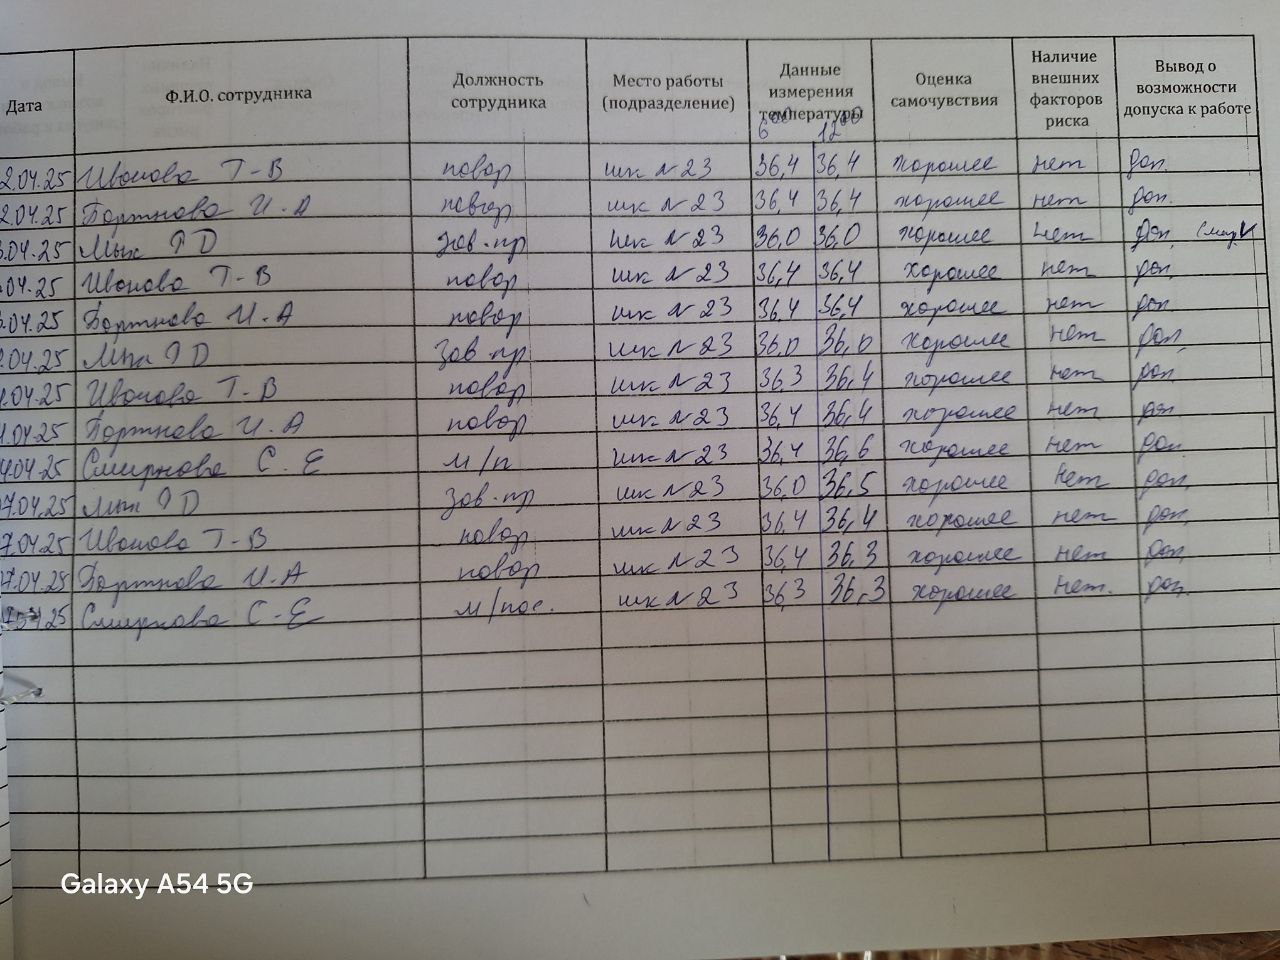 Дата Ф.И.О. сотрудника Должность сотрудника Место работы (подразделение) Данные измерения температуры Оценка самочувствия Наличие внешних факторов риска Вывод о возможности допуска к работе
6 00 12 00
2.04.25 Иванова Т-В повар шк №23 36,4 36,4 хорошее нет доп.
2.04.25 Бортнова И.А повар шк №23 36,4 36,4 хорошее нет доп.
3.04.25 Зав-пр шк №23 36,0 36,0 хорошее нет доп.
.04.25 Иванова Т-В повар шк №23 36,4 36,4 хорошее нет доп.
3.04.25 Бортнова И.А повар шк №23 36,4 36,4 хорошее нет доп.
.04.25 Зав-пр шк №23 36,0 36,0 хорошее нет доп.
4.04.25 Иванова Т-В повар шк №23 36,3 36,4 хорошее нет доп.
4.04.25 Бортнова И.А повар шк №23 36,4 36,4 хорошее нет доп.
4.04.25 Смирнова С.Е м/п шк №23 36,4 36,6 хорошее нет доп.
7.04.25 Зав-пр шк №23 36,0 36,5 хорошее нет доп.
7.04.25 Иванова Т-В повар шк №23 36,4 36,4 хорошее нет доп.
7.04.25 Бортнова И.А повар шк №23 36,4 36,3 хорошее нет доп.
25 Смирнова С-Е м/пос. шк №23 36,3 36,3 хорошее нет. доп.
Galaxy A54 5G